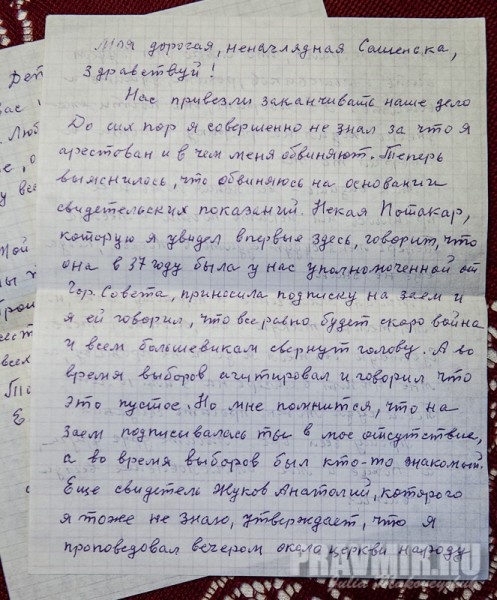 Моя дорогая, неначлядная Сашенька,
Здравствуй!
Нас привезли заканчивать наше дело
До сих пор я совершенно не знал за что я
арестован и в чем меня обвиняют. Теперь
выяснилось, что обвиняюсь на основании
свидетельских показаний. Некая Потакар,
которую я увидел впервые здесь, говорит, что
она в 37 году была у нас уполномоченной от
Гор. Совета, приносила подписку на заем и
я ей говорил, что все равно будет скоро война
и всем большевикам свернут голову. А во
время выборов агитировал и говорил что
это пустое. Но мне помнится, что на
заем подписывалась ты в мое отсутствие,
а во время выборов был кто-то знакомый.
Еще свидетель Жуков Анатолий, которого
я тоже не знаю, утверждает, что я
проповедовал вечером около церкви народу
PRAVMIR.RU